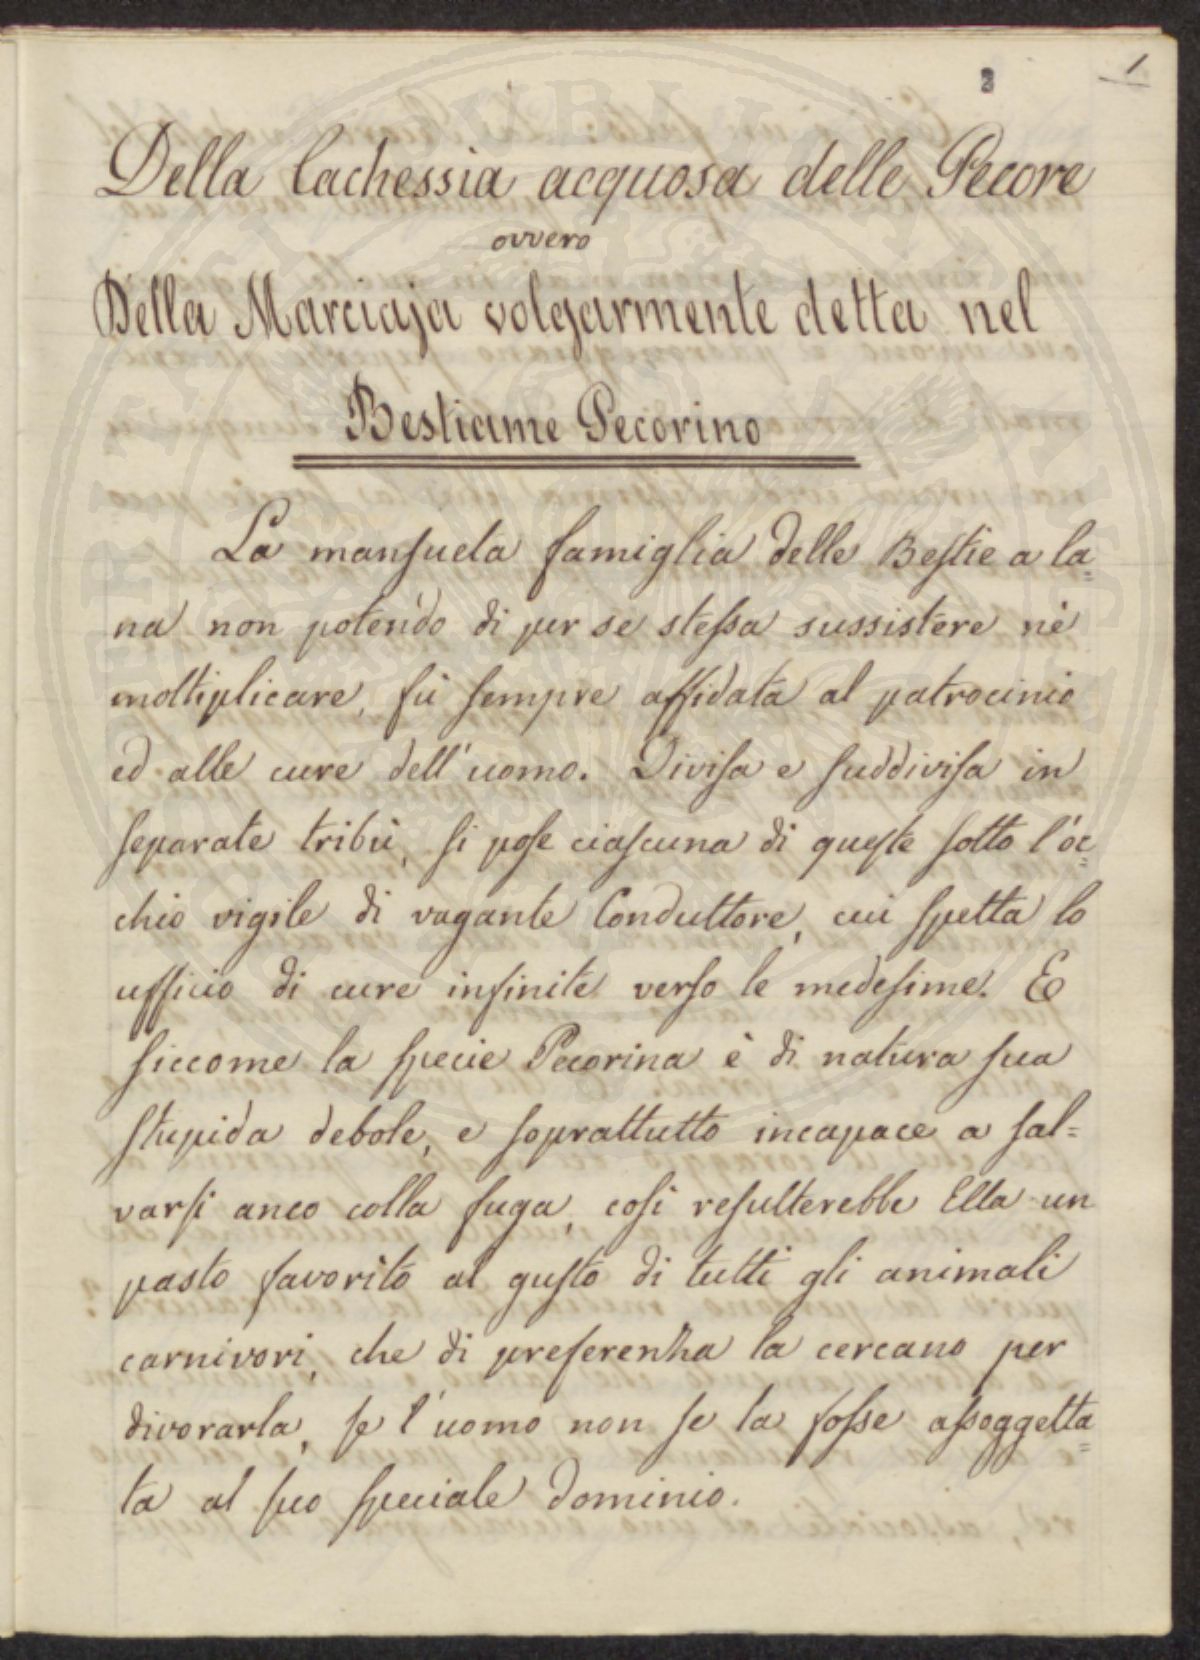 8
1
Della Cachessia acquosa delle Pecore
ovvero
Della Marciaja volgarmente detta nel
Bestiame Pecorino
La mansueta famiglia delle Bestie a la=
na non potendo di per se stessa sussistere nè
moltiplicare, fù sempre affidata al patrocinio
ed alle cure dell'uomo. Divisa e suddivisa in
separate tribù, si pose ciascuna di queste sotto l'oc=
chio vigile di vagante Conduttore, cui spetta lo
ufficio di cure infinite verso le medesime. E
siccome la specie Pecorina è di natura sua
stupida debole, e soprattutto incapace a sal=
varsi anco colla fuga, così resulterebbe Ella un
pasto favorito al gusto di tutti gli animali
carnivori, che di preferenza la cercano per
divorarla, se l'uomo non se la fosse assoggetta=
ta al suo speciale dominio.